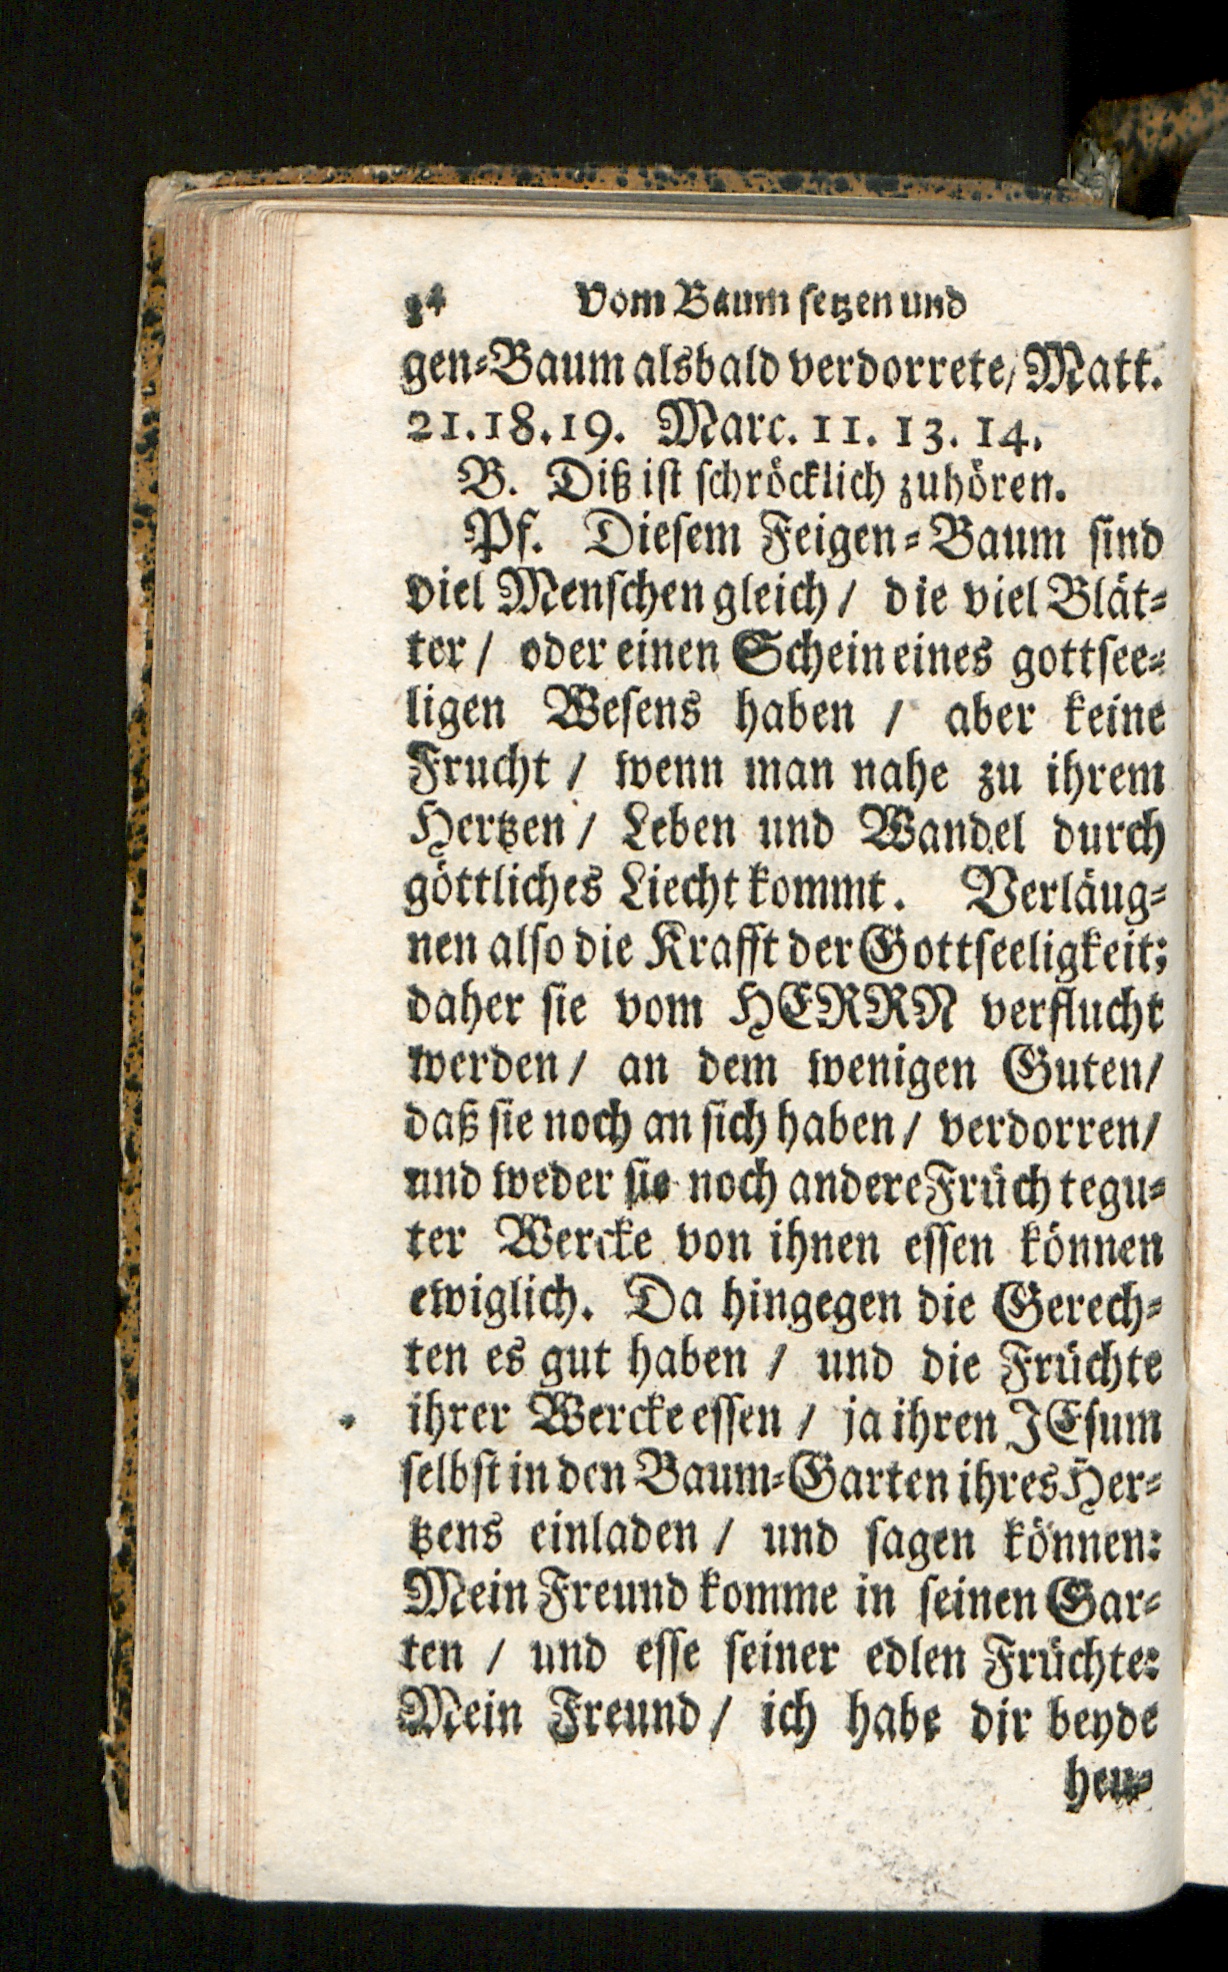 Vom Baum setzen und
gen-Baum alsbald verdorrete/ Matt.
21.18.19. Marc. 11. 13. 14.
B. Diß ist schröcklich zuhören.
Pf. Diesem Feigen-Baum sind
viel Menschen gleich/ die viel Blät-
ter/ oder einen Schein eines gottsee-
ligen Wesens haben / aber keine
Frucht / wenn man nahe zu ihrem
Hertzen / Leben und Wandel durch
göttliches Liecht kommt. Verläug-
nen also die Krafft der Gottseeligkeit;
daher sie vom HERRN verflucht
werden/ an dem wenigen Guten/
daß sie noch an sich haben/ verdorren/
und weder sie noch andere Früch tegu-
ter Wercke von ihnen essen können
ewiglich. Da hingegen die Gerech-
ten es gut haben / und die Früchte
ihrer Wercke essen / ja ihren JEsum
selbst in den Baum-Garten ihres Her-
tzens einladen / und sagen können:
Mein Freund komme in seinen Gar-
ten / und esse seiner edlen Früchte:
Mein Freund/ ich habe dir beyde
heu-